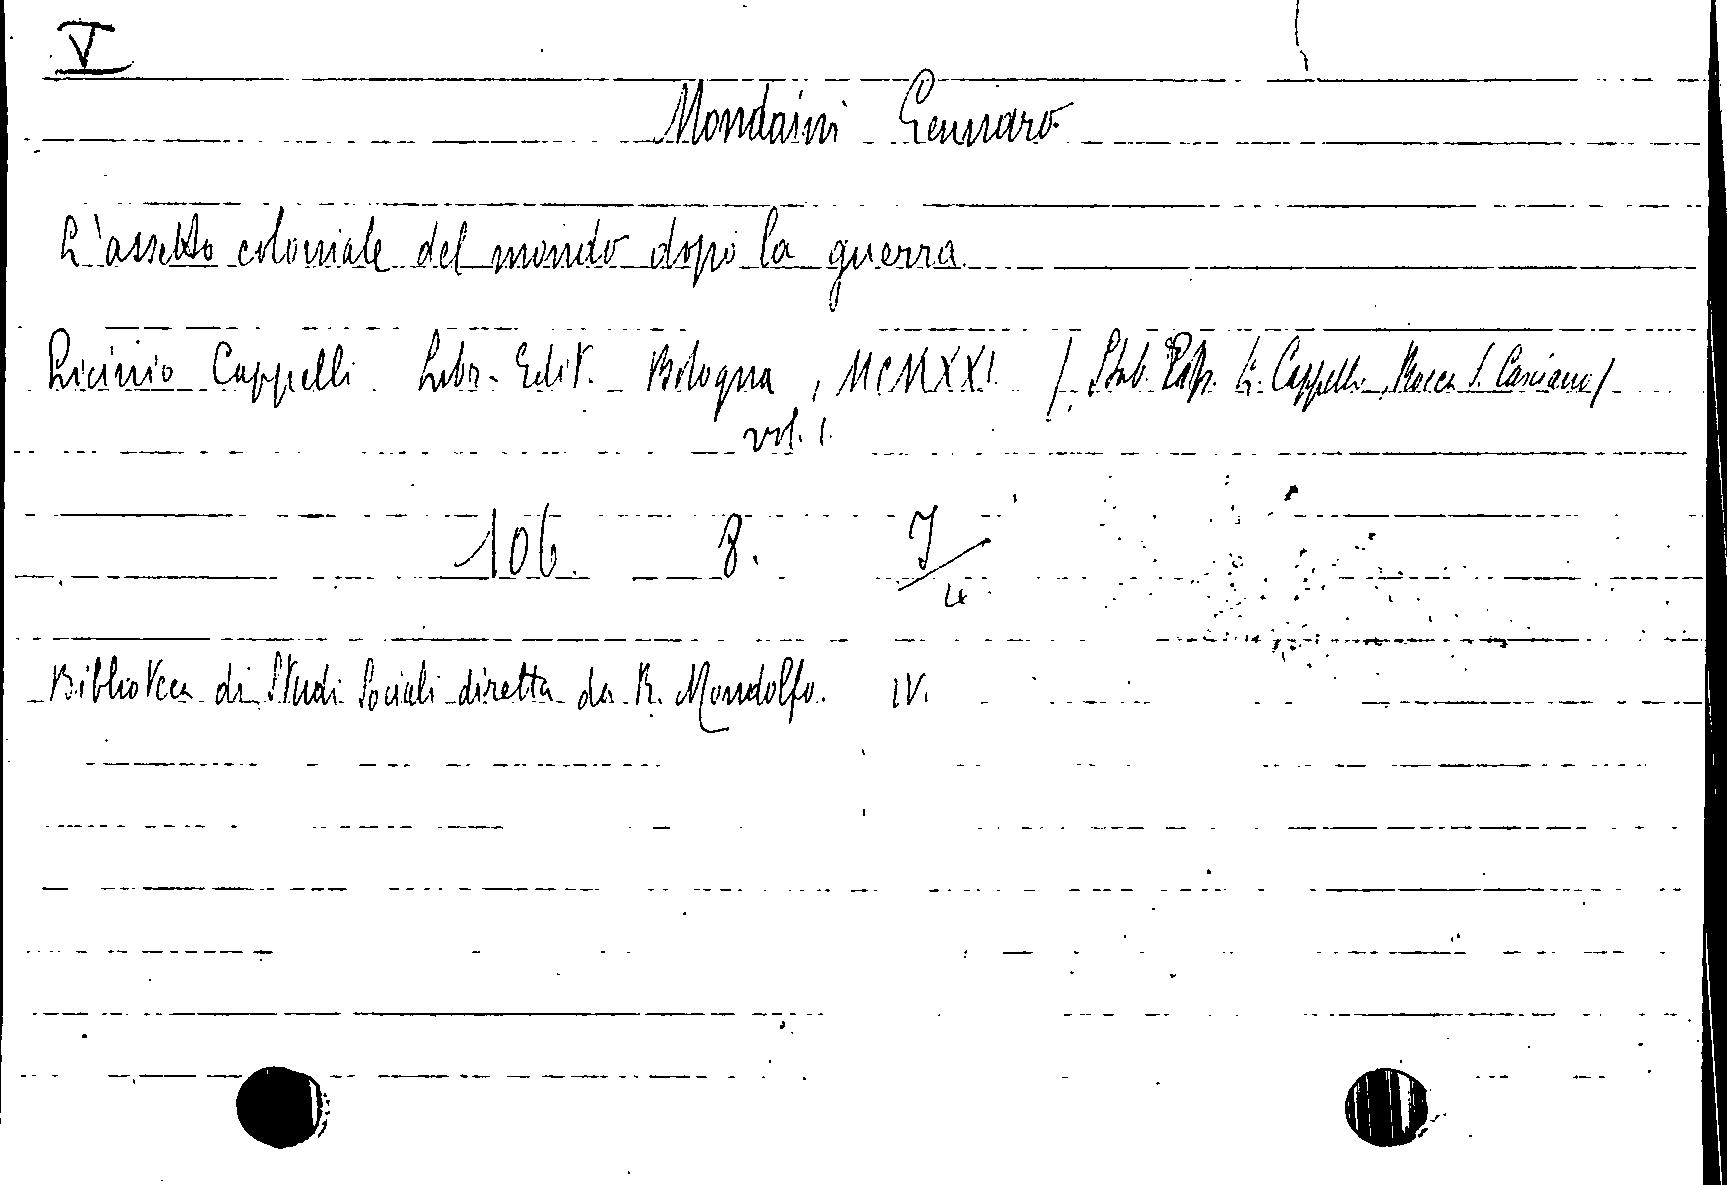 V
Mondaini Gennaro
L'assetto coloniale del mondo dopo la guerra
Licinio Cappelli Libr. Edit. Bologna, MCMXXI (Stab. L. Cappelli, Rocca S. Casciano)
vol. 1.
106. 8. 7/4
Biblioteca di Studi Sociali diretta da R. Mondolfo. IV.